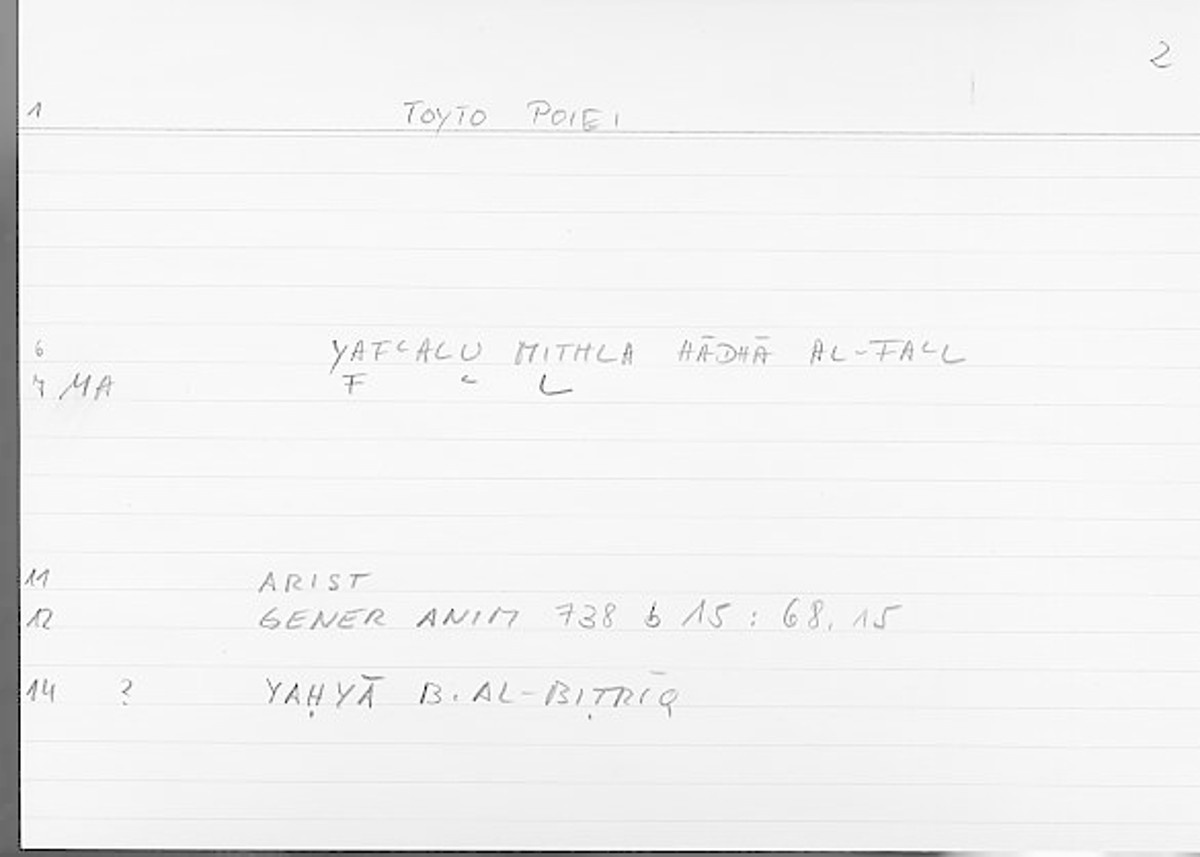 2
1 TOYTO POIEI
6 YAFʿALU MITHLA HĀDHĀ AL-FAʿL
7 MA F ʿ L
11 ARIST
12 GENER ANIM 738 b 15 : 68, 15
14 ? YAḤYĀ B. AL-BIṬRĪQ